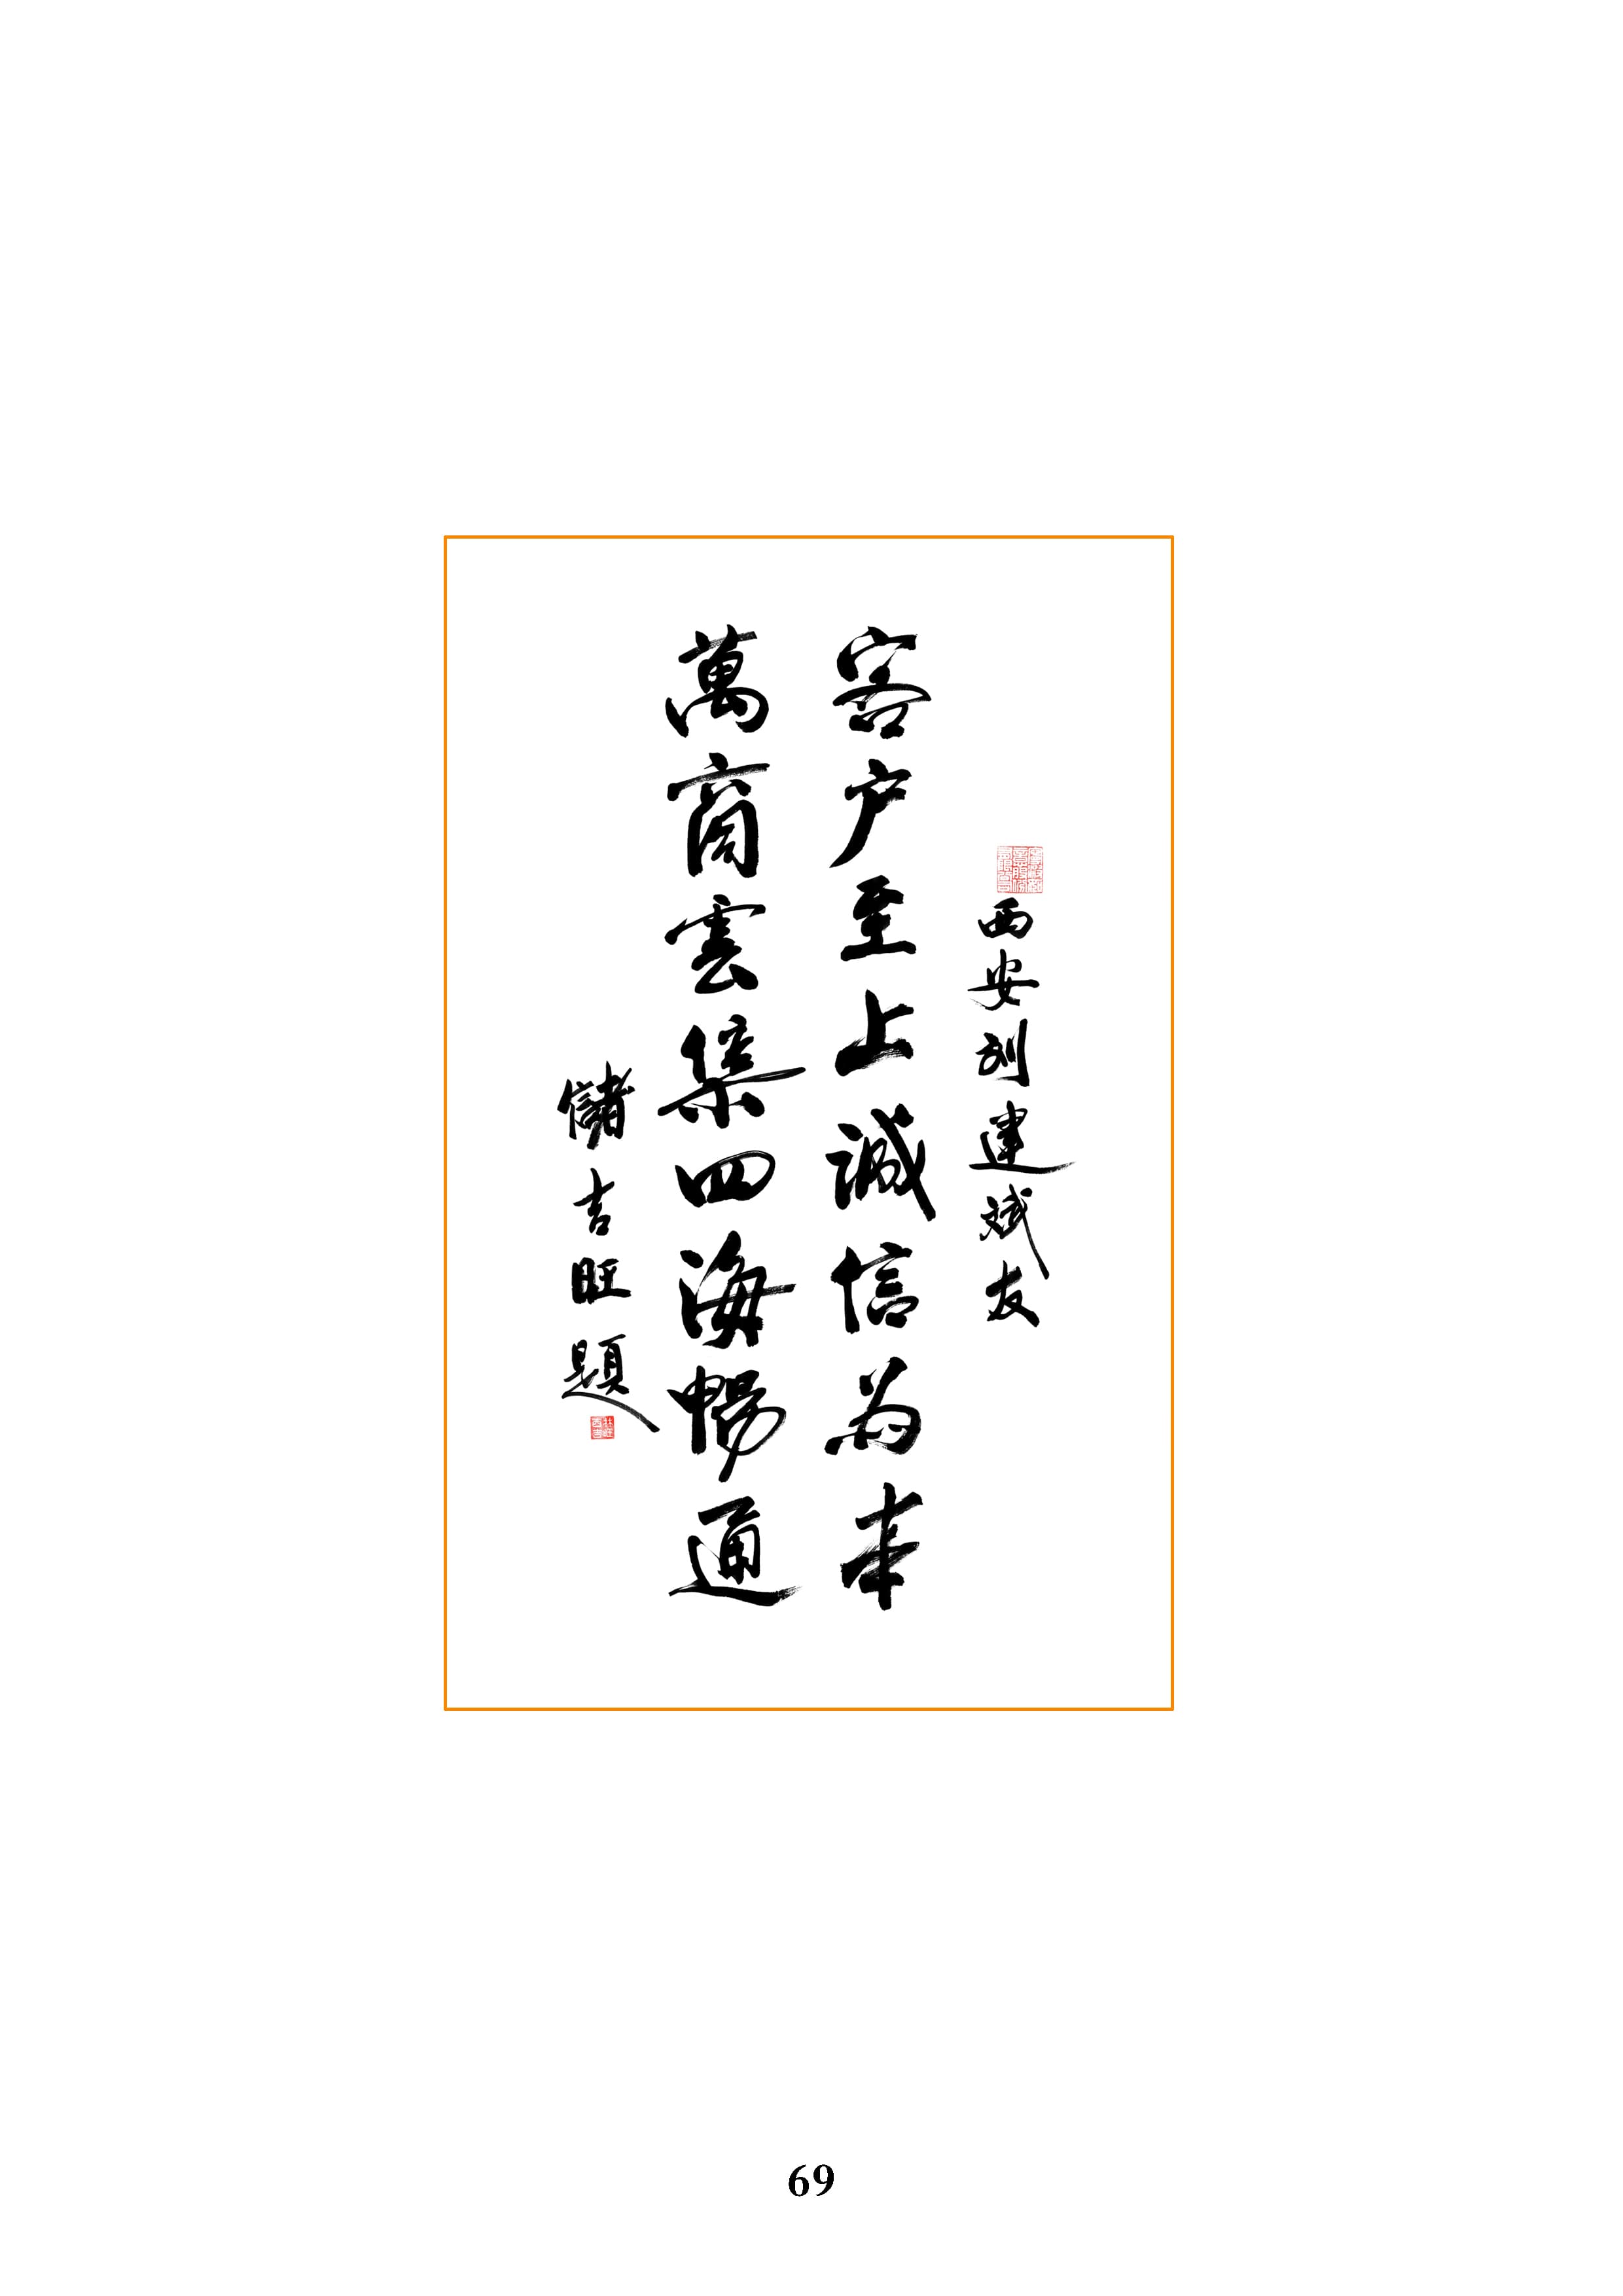 西安刘建斌友
客户至上诚信为本
萬商雲集四海暢通
储吉旺題
69